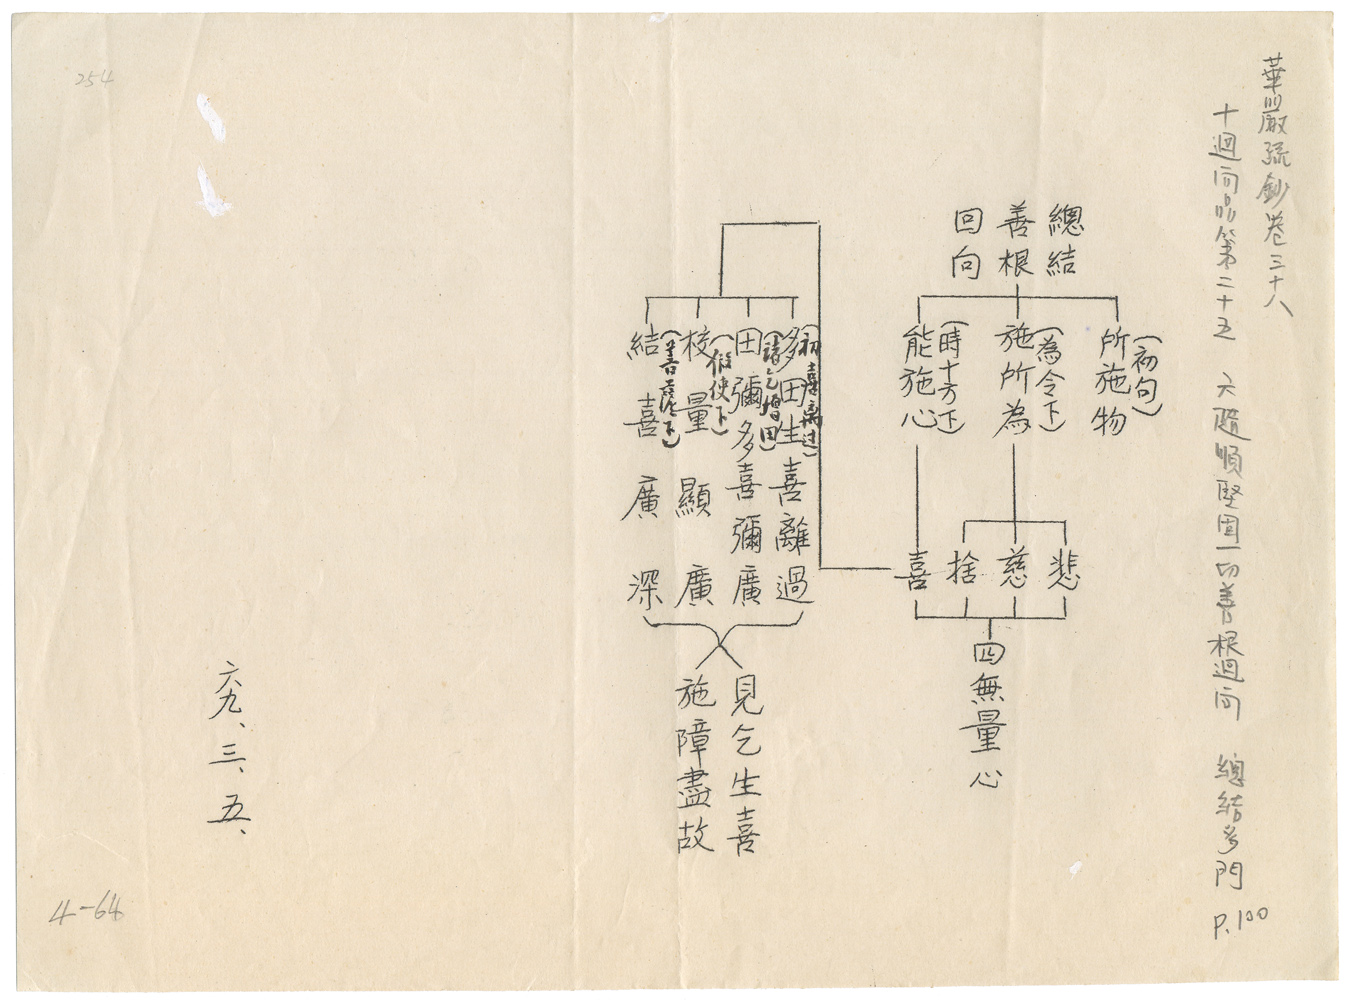 華嚴疏鈔卷三十八
十迴向品第二十五 六隨順堅固一切善根迴向 總結多門 P.100
總結
善根
回向
(初句)
所施物
(為令下)
施所為
(時十方下)
能施心
悲
慈
捨
喜
四無量心
(初喜離过)
多田生喜離過
(諸乞增田)
田彌多喜彌廣
(假使下)
校量顯廣
(菩薩下)
結喜廣深
見乞生喜
施障盡故
六九、三、五、
254
4-64